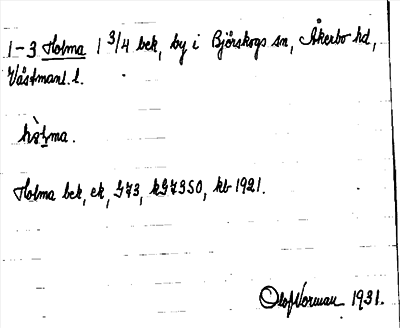 1-3 Holma 1 3/4 bek, by i Björskogs sn, Åkerbo hd,
Västmanl. l.
hòlma.
Holma bek, ek, G73, kG73SO, kb 1921.
Olof Norman 1931.